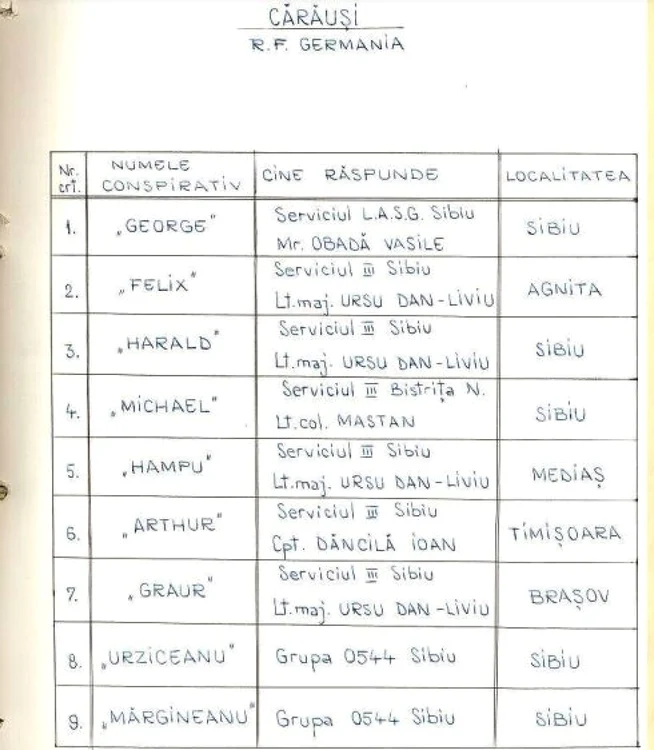 CĂRĂUȘI
R.F. GERMANIA
Nr. crt. | NUMELE CONSPIRATIV | CINE RĂSPUNDE | LOCALITATEA
1. | „GEORGE" | Serviciul L.A.S.G. Sibiu
Mr. OBADĂ VASILE | SIBIU
2. | „FELIX" | Serviciul III Sibiu
Lt.maj. URSU DAN-LIVIU | AGNITA
3. | „HARALD" | Serviciul III Sibiu
Lt.maj. URSU DAN-LIVIU | SIBIU
4. | „MICHAEL" | Serviciul III Bistrița N.
Lt.col. MASTAN | SIBIU
5. | „HAMPU" | Serviciul III Sibiu
Lt.maj. URSU DAN-LIVIU | MEDIAȘ
6. | „ARTHUR" | Serviciul III Sibiu
Cpt. DĂNCILĂ IOAN | TIMIȘOARA
7. | „GRAUR" | Serviciul III Sibiu
Lt.maj. URSU DAN-LIVIU | BRAȘOV
8. | „URZICEANU" | Grupa 0544 Sibiu | SIBIU
9. | „MĂRGINEANU" | Grupa 0544 Sibiu | SIBIU